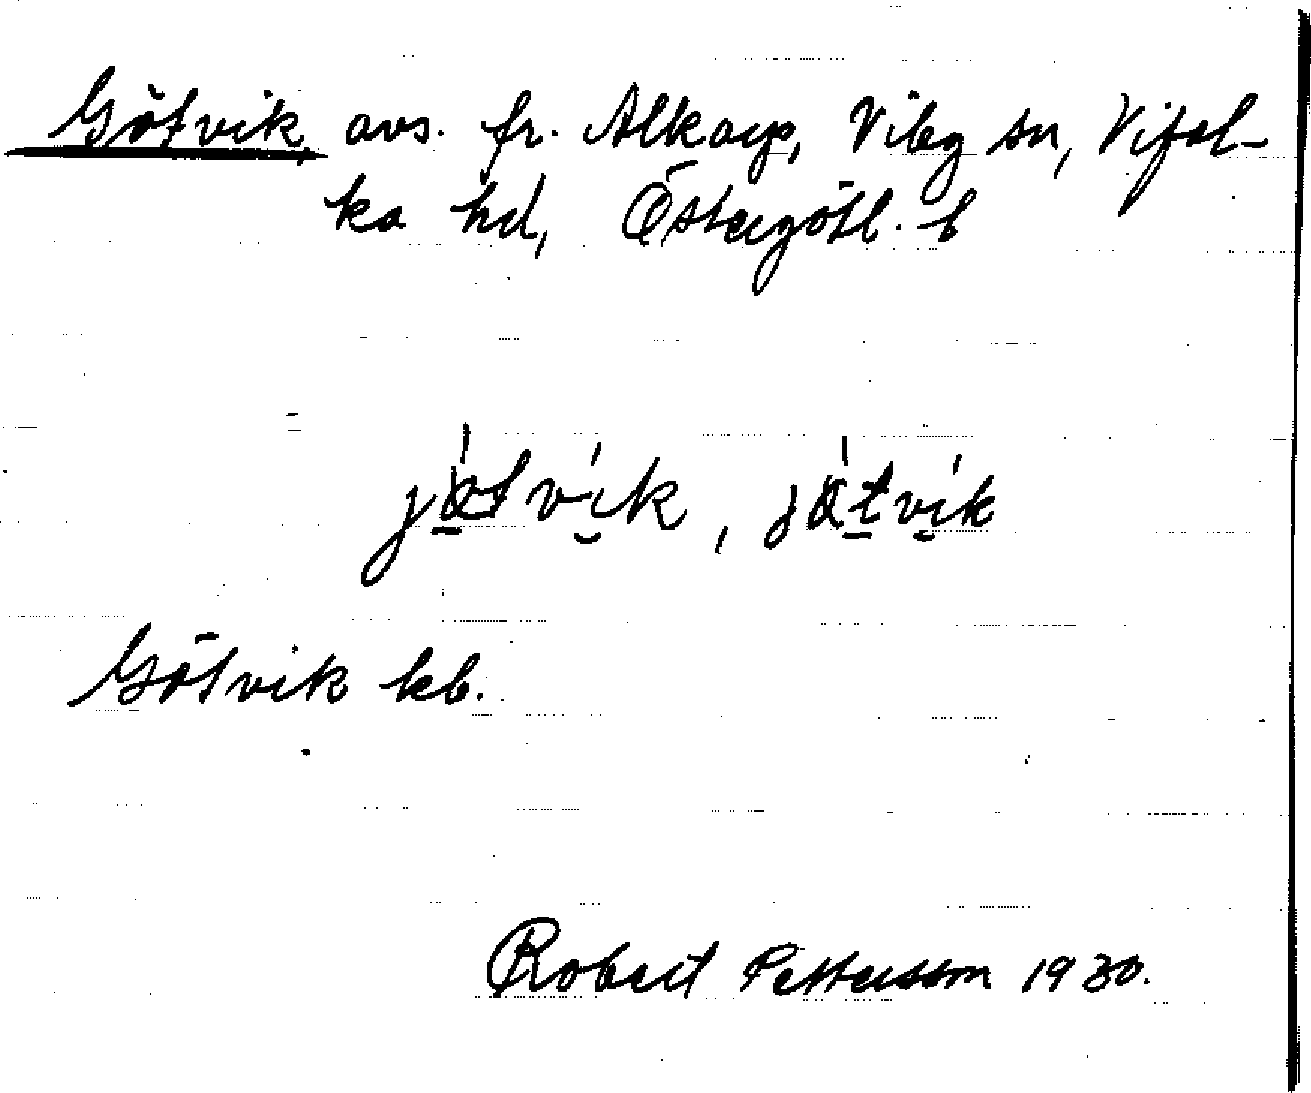 Götvik, avs. fr. Alkarp, Viby sn, Vifol-
ka hd, Östergötl. l
jätvik, jätvik
Götvik kb.
Robert Pettersson 1930.